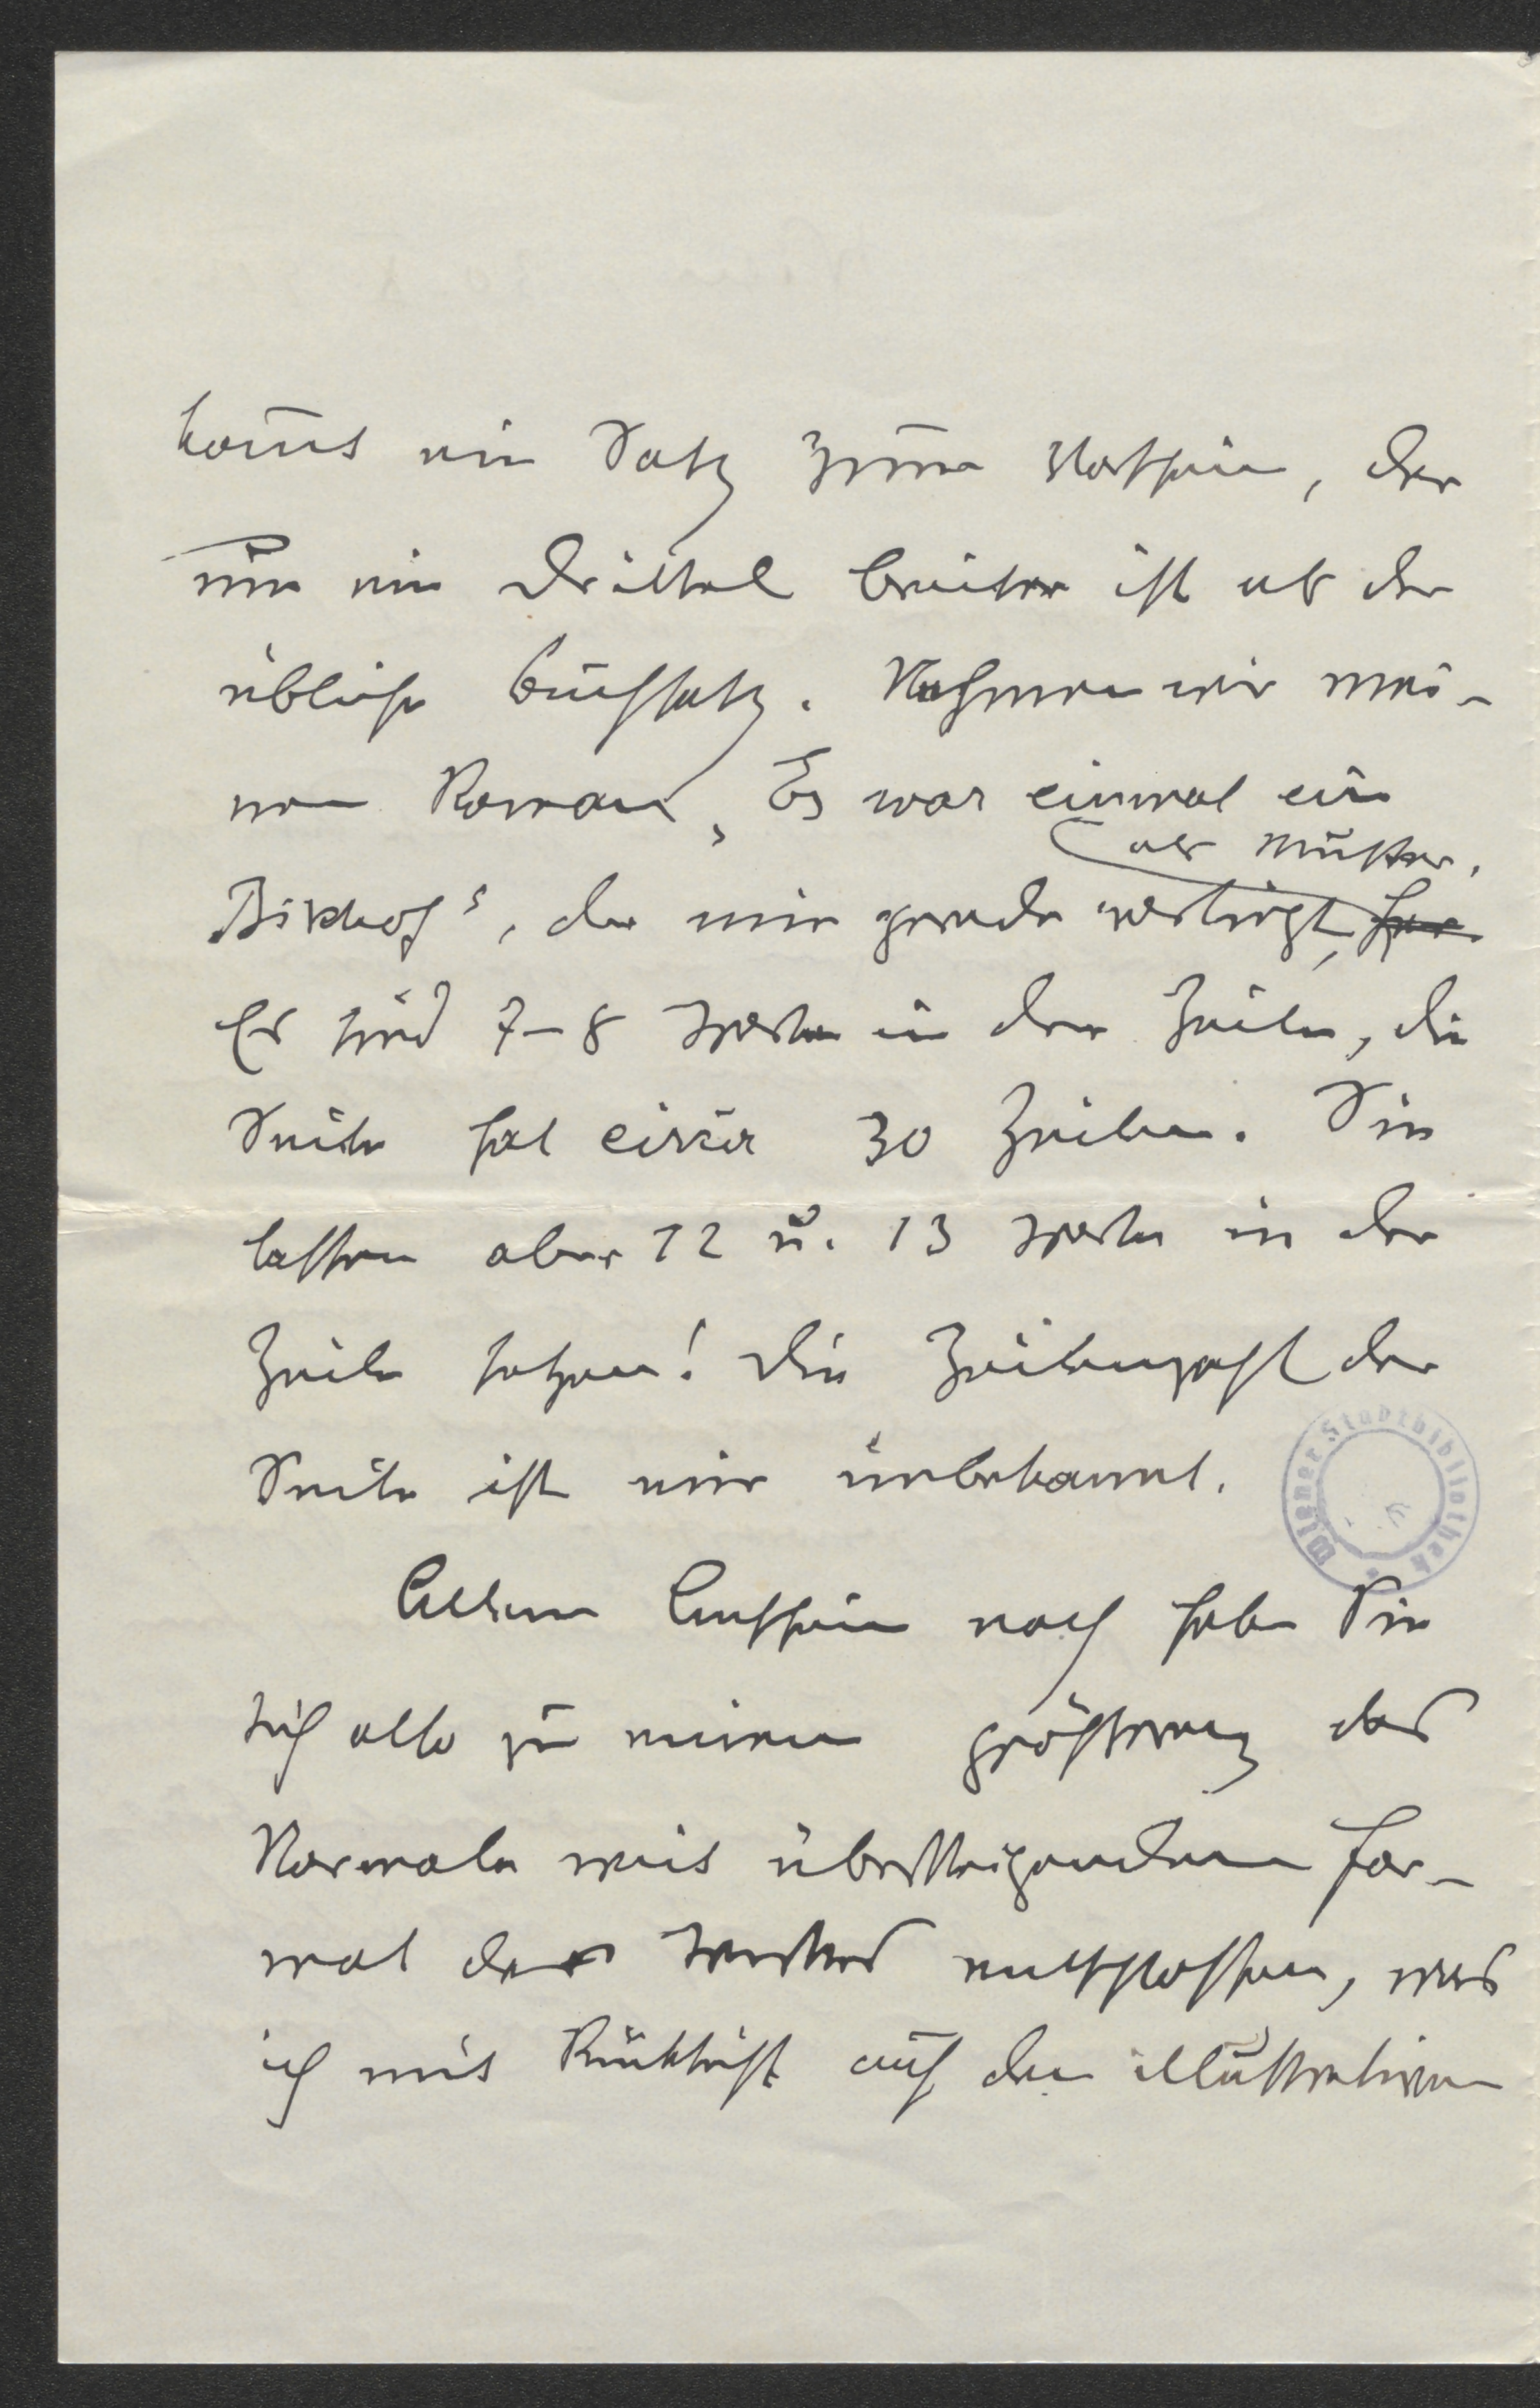 kom̅t ein Satz zum Vorschein, der
um ein Drittel breiter ist als der
übliche Buchsatz. Nehmen wir mei-
nen Roman „Es war einmal ein
als Muster.
Bischof“, der mir gerade vorliegt, her
Es sind 7–8 Worte in der Zeile, die
Seite hat circa 30 Zeilen. Sie
lassen aber 12 u. 13 Worte in der
Zeile setzen! Die Zeilenzahl der
Seite ist mir unbekannt.
Wiener Stadtbibliothek
Allem Anschein nach haben Sie
sich also zu einem größeren, das
Normale weit übersteigenden For-
mat des Werkes entschlossen, was
ich mit Rücksicht auf den illustrativen